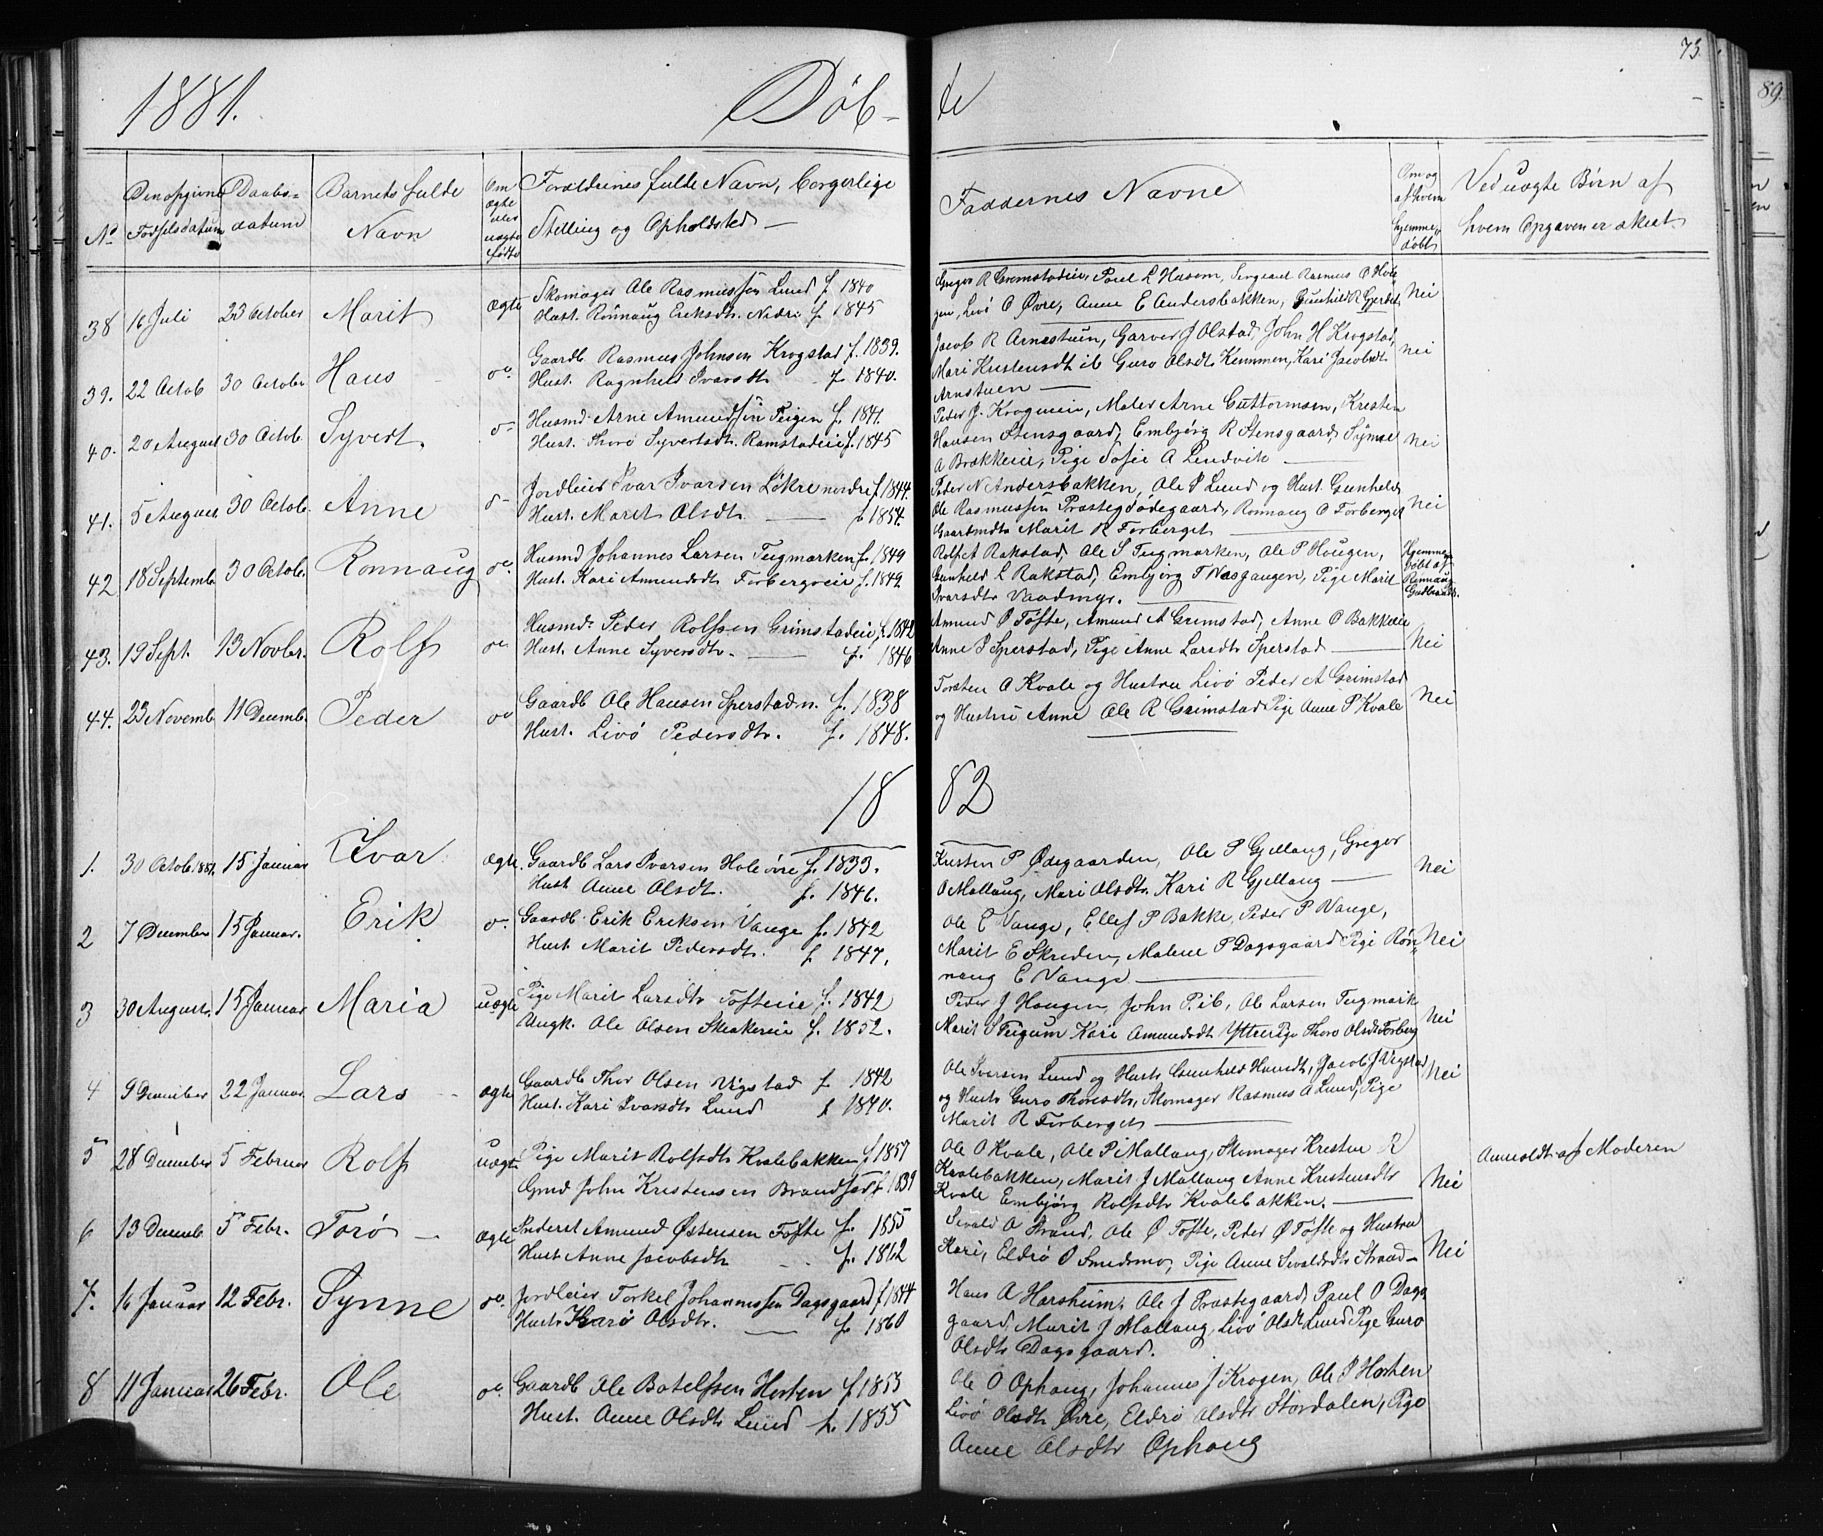 73
89.
1881. Døb- te
No
Den opgivne Fødselsdatum
Daabs-datum
Barnets fulde Navn
Om ægte eller uægte født
Forældrenes fulde Navn, borgerlige Stilling og Opholdsted
Faddernes Navne
Om og af hvem hjemmedøbt
Ved uægte Børn af hvem Opgaven er skeet.
38 16 Juli 23 October Marit ægte Skomager Ole Rasmussen Lund f. 1840
Hust. Rønnaug Eriksdtr. Nidre f. 1845
Greger R Grimstadeie, Poul L Husom, Sergeant Rasmus O Hole
gen, Livø O Øvre, Anne E Andersbakken, Gunhild R Gjerdet
Nei
39. 22 Octob 30 October Hans do. Gaardb Rasmus Johnsen Krogstad f. 1839.
Hust. Ragnhild Ivarsdtr f. 1840.
Jacob R Arnestuen, Garver J Olstad, John H Krogstad,
Mari Kristensdt ib Guro Olsdt Kummen, Kari Jacobsdt
Arnstuen
nei
40. 20 August 30 Octob. Syvert. do Husmd. Arne Amundssøn Teigen f. 1841.
Hust. Thorø Syvertsdt. Ramstadeie f. 1845
Peder J. Krogeneie, Maler Arne Guttormsen, Kresten
Hansen Stensgaard, Embjørg R Stensgaard, Synne
A Brækkeie, Pige Sofie A Lindvik
Nei
41. 5 August 30 Octob. Anne do Jordleier Ivar Ivarsen Løkre nordre f 1844.
Hust. Marit Olsdt. f. 1854.
Peder N Andersbakken, Ole P Lund og Hust. Gunhild
Ole Rasmussen Præstegjødegaard, Rønnaug O Forberget
Gaardmdtr Marit R Forberget
Nei
42 18 Septemb. 30 Octob. Rønnaug do. Husmd Johannes Larsen Tugmarken f. 1849
Hust. Kari Amundsdt Forbergseie f. 1849
Rolf A Rakstad, Ole S Tugmarken, Ole P Hougen,
Gunhild L Rakstad, Embjørg T Wasgangen, Pige Marit
Ivarsdtr Vaadmyr.
Hjemme-
døbt af
Rønnaug
Gudbrandsd.
43. 19 Sept. 13 Novbr. Rolf do. Husmd. Peder Rolfsen Grimstadeie f. 1842
Hust. Anne Syversdtr. f. 1846
Amund P Tofte, Amund A Grimstad, Anne O Bakkeeie
Anne P Sperstad, Pige Anne Larsdtr Sperstad
Nei
44. 23 Novemb 11 Decemb. Peder do Gaardb Ole Hansen Sperstad n. f. 1838
Hust. Livø Pedersdtr. f. 1848.
Torsten O Kvale og Hustru Livø Peder A Grimstad
og Hustru Anne Ole R Grimstad, Pige Anne P Kvale
Nei
18 82
1. 30 Octob. 1881. 15 Januar Ivar ægte. Gaardb Lars Ivarsen Hole øvre f. 1833.
Hust Anne Olsdt. f. 1846.
Kristen P Ødegaarden, Ole P Gjellang, Greger
O Mallaug, Mari Olsdtr Kari R Gjellang
Nei
2 7 December 15 Januar. Erik do. Gaardb. Erik Eriksen Vange f. 1842
Hust Marit Pedersdt. f. 1847.
Ole E Vange, Ellef P Bakke, Peder P Vange,
Marit E Skreden, Malene P Dagsgaard Pige Røn-
naug E Vange
Nei
3 30 August. 15 Januar Maria uægte Pige Marit Larsdtr Tofteeie f. 1842
Ungk. Ole Olsen Skeakereie f. 1852.
Peder J Hougen, John P ib, Ole Larsen Tugmark
Marit S Teigum Kari Amundsdt Ytterhje Thoro Olsdt Forberg
Nei
4 9 December 22 Januar Lars ægte Gaardb Thor Olsen Vigstad f 1842
Hust. Kari Ivarsdt Lund f 1840.
Ole Iversen Lund og Hustr Gunhild Hansdt, Jacob J Vigstad
og Hustr Guro Thoresdtr, Skomager Rasmus A Lund, Pige
Marit R Forberget
Nei
5 28 December 5 Februar Rolf uægte Pige Marit Rolfsdtr Kvalebakken f 1857
Gmd John Kristensen Brandsar f 1839
Ole O Kvale, Ole P Mallaug, Skomager Kresten R
Kvalebakken, Marit J Mallaug Anne Kristensdtr
Kvale Embjørg Rolfsdtr Kvalebakken.
Nei
Anmeldt af Moderen
6 13 Decemb 5 Febr. Torø ægte Inderst Amund Østensen Tofte f. 1855
Hust Anne Jacobsdt f. 1862
Sivald A Strand, Ole Ø Tofte, Peder Ø Tofte og Hustru
Kari, Eldrø O Smedsmo, Pige Anne Sivaldsdtr Strand
Nei
7. 16 Januar 12 Febr. Synne do. Jordleier Torkel Johannessen Dagsgaard f 1844
Hustr Karø Olsdtr. f. 1860
Hans A Harsheim, Ole J Præstegaard, Poul O Dags
gaard, Marit J Mallaug, Livø Olsdt Lund Pige Guro
Olsdtr Dagsgaard.
8 11 Januar 26 Febr. Ole do. Gaardb Ole Botelfsen Horten f 1853
Hust. Anne Olsdtr Lund f. 1855
Ole O Ophaug, Johannes J Krogen, Ole P Horten
Livø Olsdt Øvre, Eldrø Olsdtr Stordalen, Pige
Anne Olsdtr Ophaug